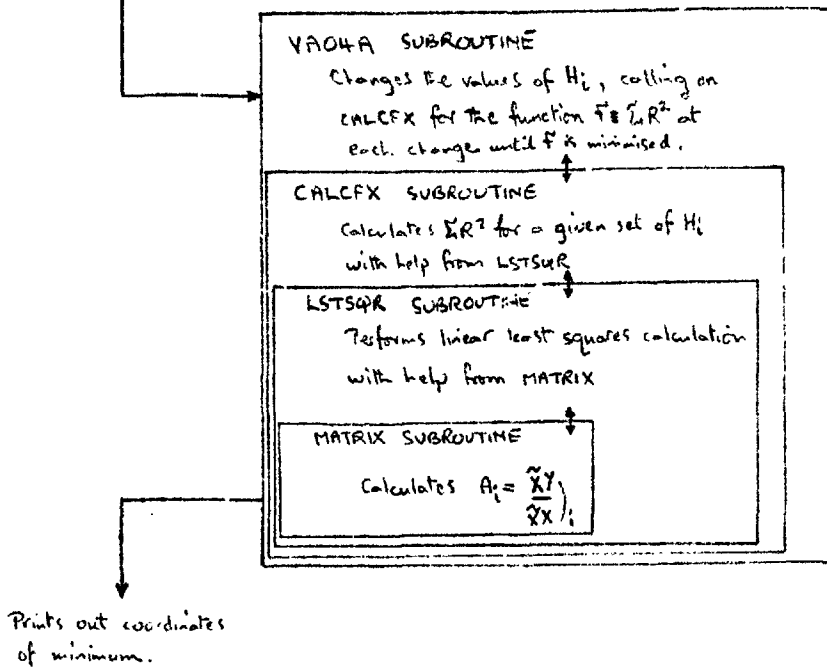 VA04A SUBROUTINE
Changes the values of Hi, calling on
CALCFX for the function f ≡ ΣR² at
each change until f is minimised.
CALCFX SUBROUTINE
Calculates ΣR² for a given set of Hi
with help from LSTSQR
LSTSQR SUBROUTINE
Performs linear least squares calculation
with help from MATRIX
MATRIX SUBROUTINE
Calculates Ai = X̃Y
X̃X)i
Prints out coordinates
of minimum.